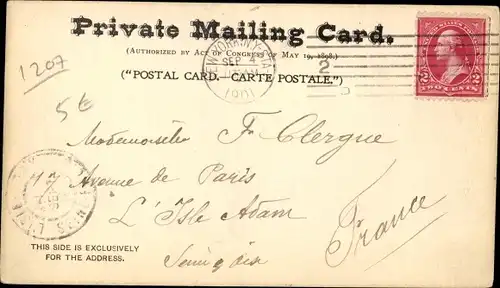 Private Mailing Card.
(AUTHORIZED BY ACT OF CONGRESS OF MAY 19, 1898.)
("POSTAL CARD.- CARTE POSTALE.")
1207
5€
NEW YORK, N.Y. STA
SEP 4
1901
2
D
2 2
TWO CENTS
Mademoiselle F. Clergue
17 Avenue de Paris
L'Isle Adam
Seine & Oise
France
THIS SIDE IS EXCLUSIVELY
FOR THE ADDRESS.